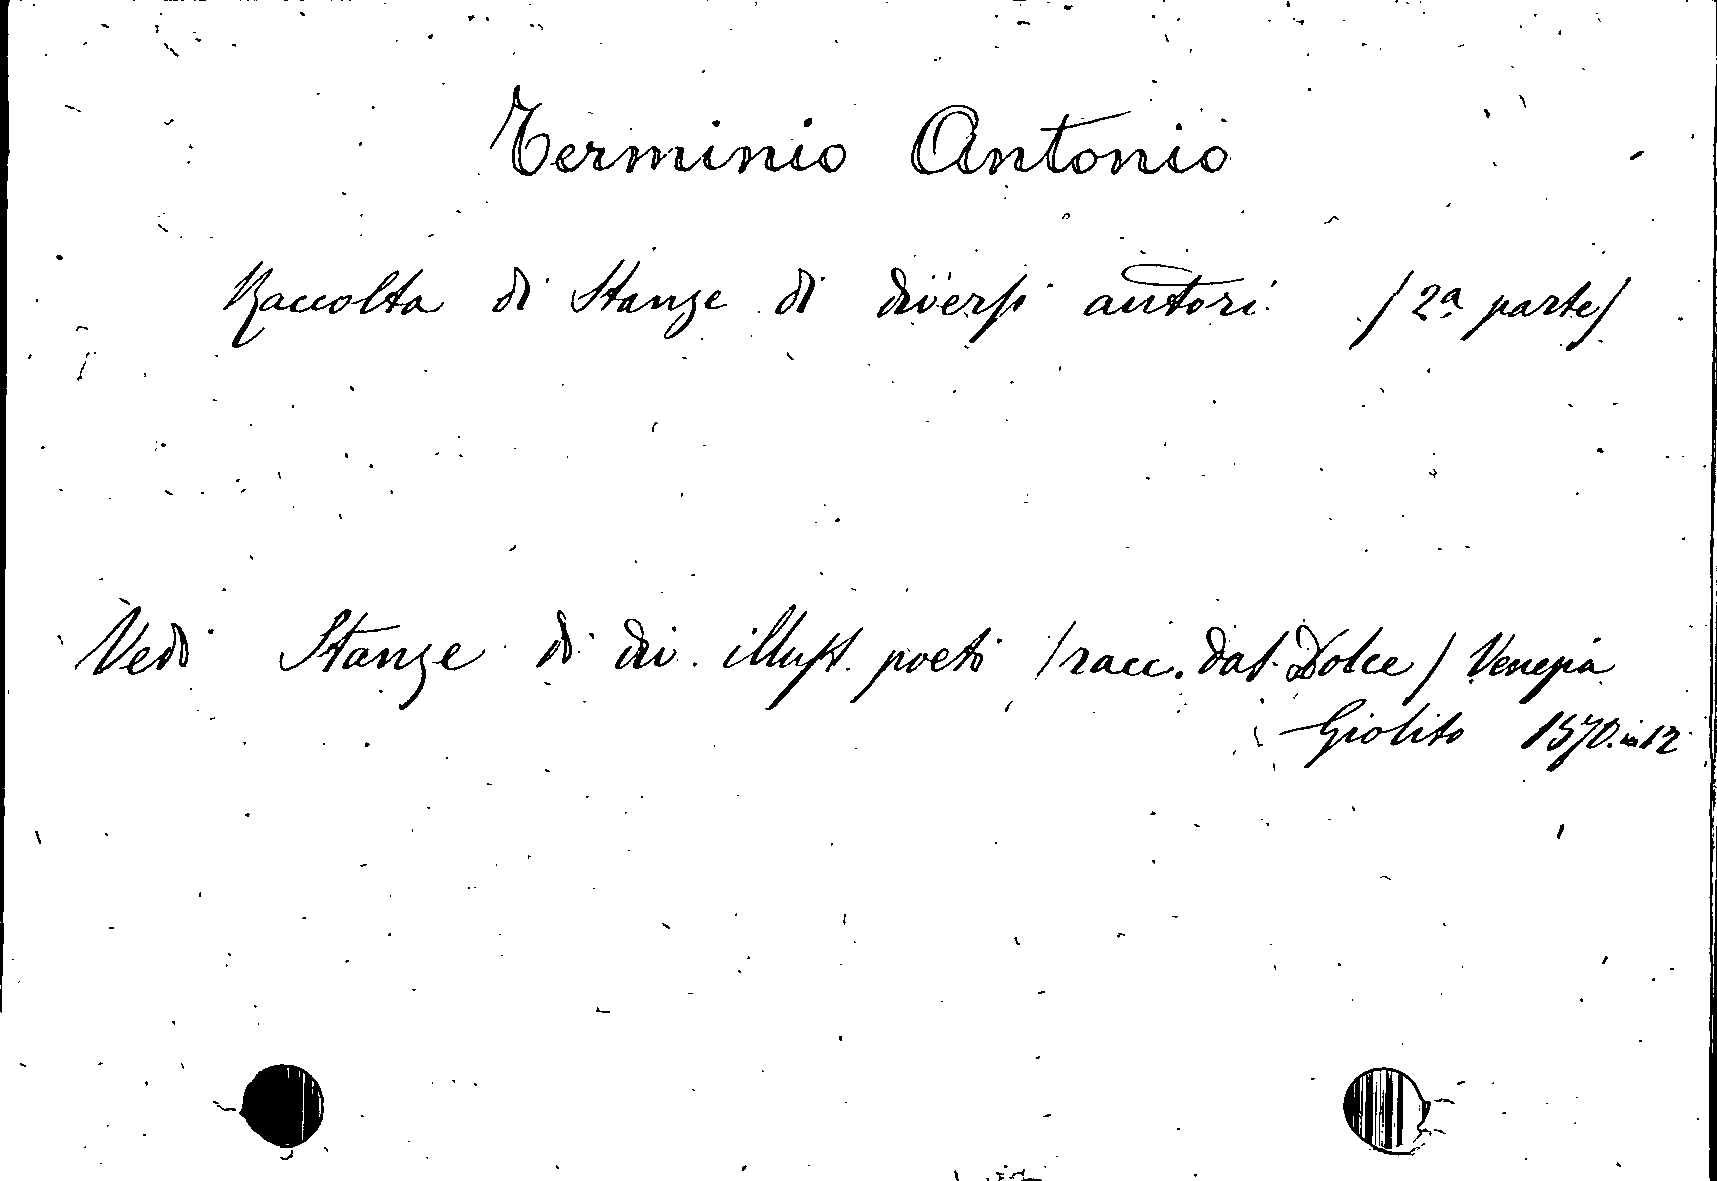 Terminio Antonio
Raccolta di Stanze di diversi autori /2ª parte/
Vedi Stanze di div. illust. poeti /racc. dal Dolce/ Venezia
Giolito 1570. in 12